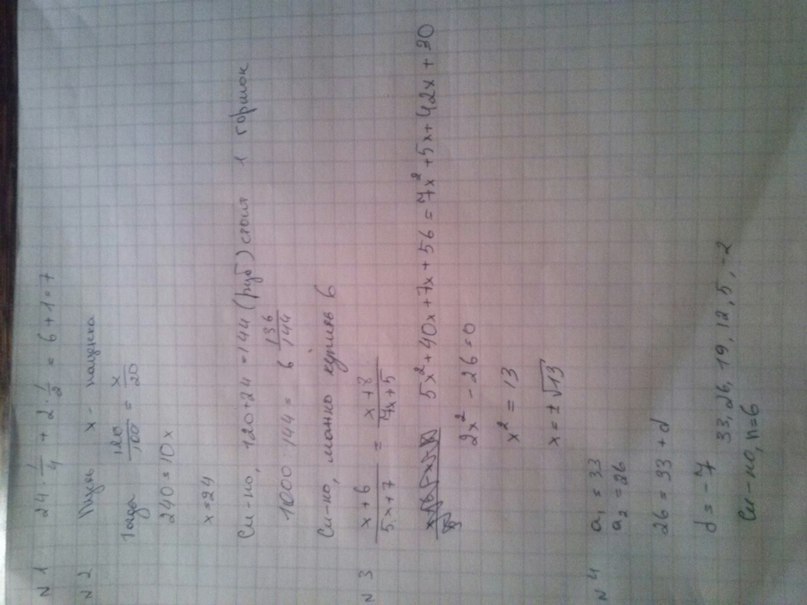 N 1 24 · 1/4 + 2 · 1/2 = 6 + 1 = 7
N 2 Пусть x - наценка
Тогда 120/100 = x/20
240 = 10x
x = 24
См-но, 120+24 = 144 (руб) стоит 1 горшок
1000 : 144 = 6 136/144
См-но, можно купить 6
N 3 x+6/5x+7 = x+8/7x+5
5x²+40x+7x+56 = 7x²+5x+42x+30
2x² - 26 = 0
x² = 13
x = ±√13
N 4 a₁ = 33
a₂ = 26
26 = 33 + d
d = -7
33, 26, 19, 12, 5, -2
См-но, n=6